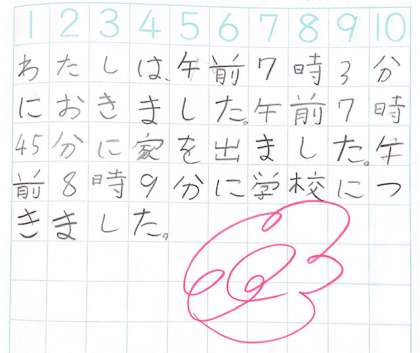 1 2 3 4 5 6 7 8 9 10
わたしは、午前7時3分
におきました。午前7時
45分に家を出ました。午
前8時9分に学校につ
きました。